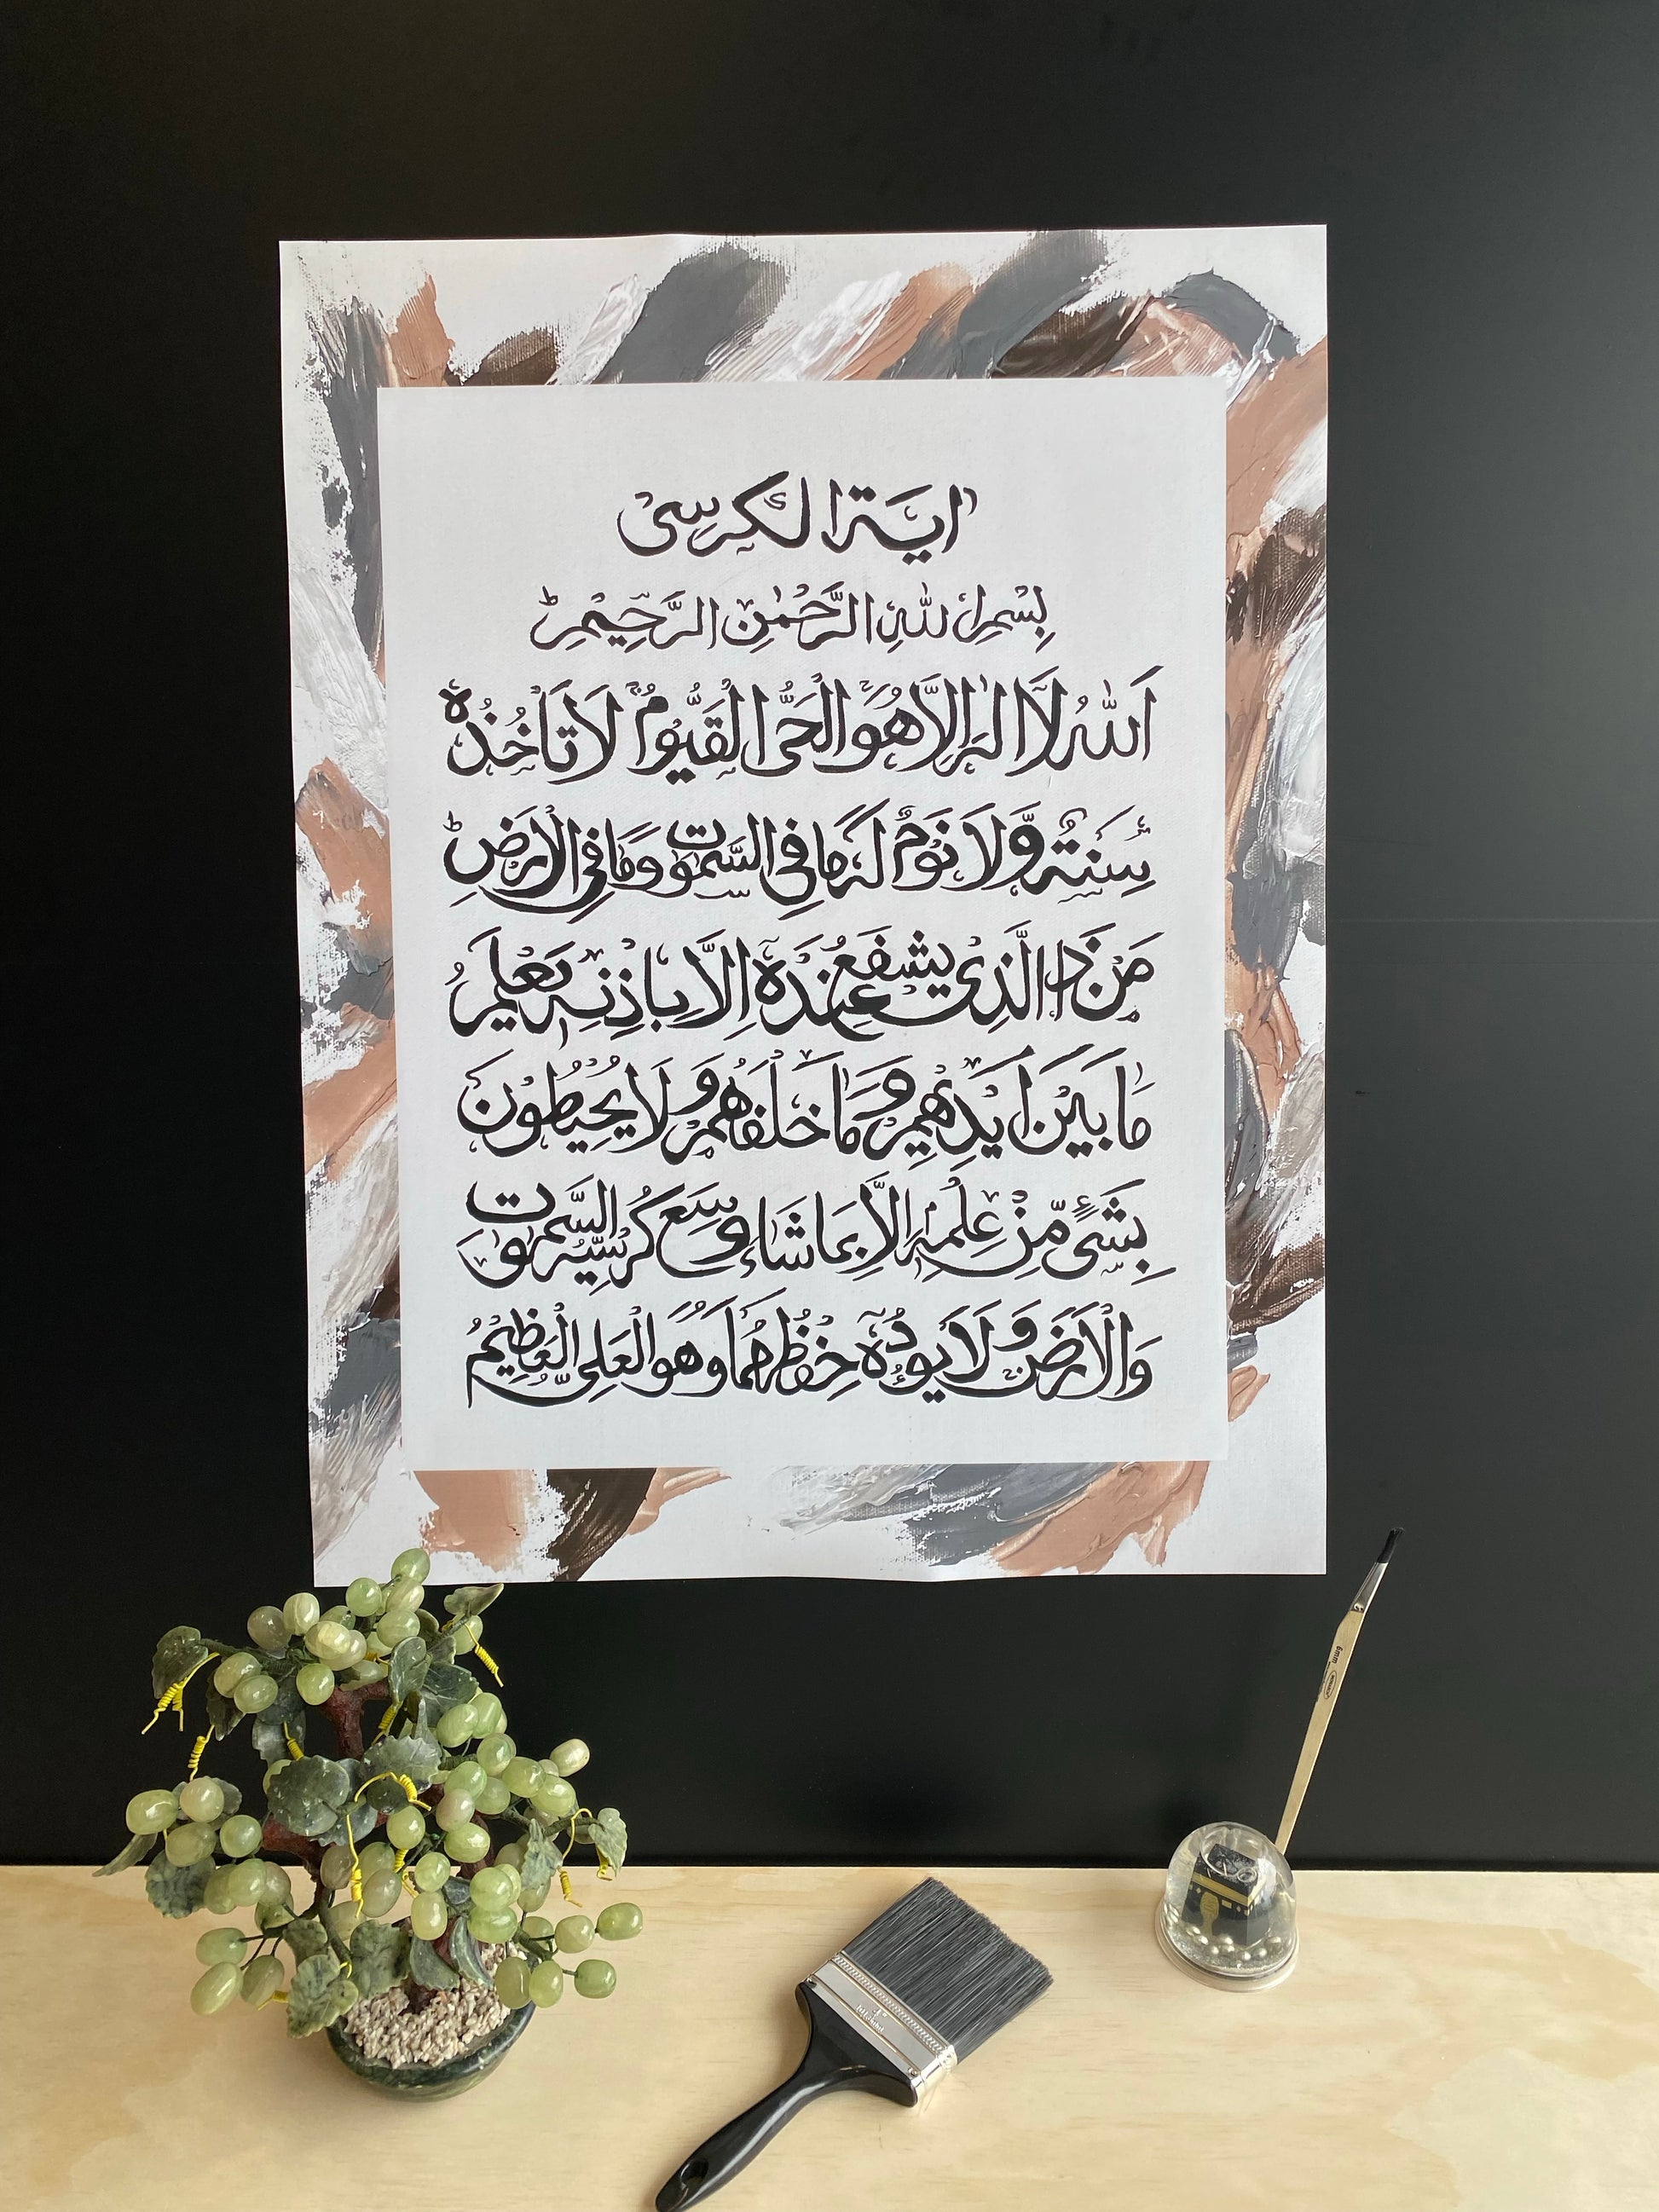 اٰیَۃ الکُرسِیْ
بِسْمِ اللّٰہِ الرَّحْمٰنِ الرَّحِیْمِ ؕ
اَللّٰہُ لَاۤ اِلٰہَ اِلَّا ھُوَ ۚ الْحَیُّ الْقَیُّوْمُ لَا تَاْخُذُہٗ
سِنَۃٌ وَّلَا نَوْمٌ لَہٗ مَا فِی السَّمٰوٰت وَمَا فِی الْاَرْضِ ؕ
مَنْ ذَا الَّذِیْ یَشْفَعُ عِنْدَہٗۤ اِلَّا بِاِذْنِہٖ یَعْلَمُ
مَا بَیْنَ اَیْدِیْھِمْ وَمَا خَلْفَھُمْ وَلَا یُحِیْطُوْنَ
بِشَیْءٍ مِّنْ عِلْمِہٖۤ اِلَّا بِمَا شَاءَ وَسِعَ کُرْسِیُّہُ السَّمٰوٰت
وَالْاَرْضَ وَلَا یَـُٔوْدُہٗ حِفْظُھُمَا وَھُوَ الْعَلِیُّ الْعَظِیْمُ
6mm